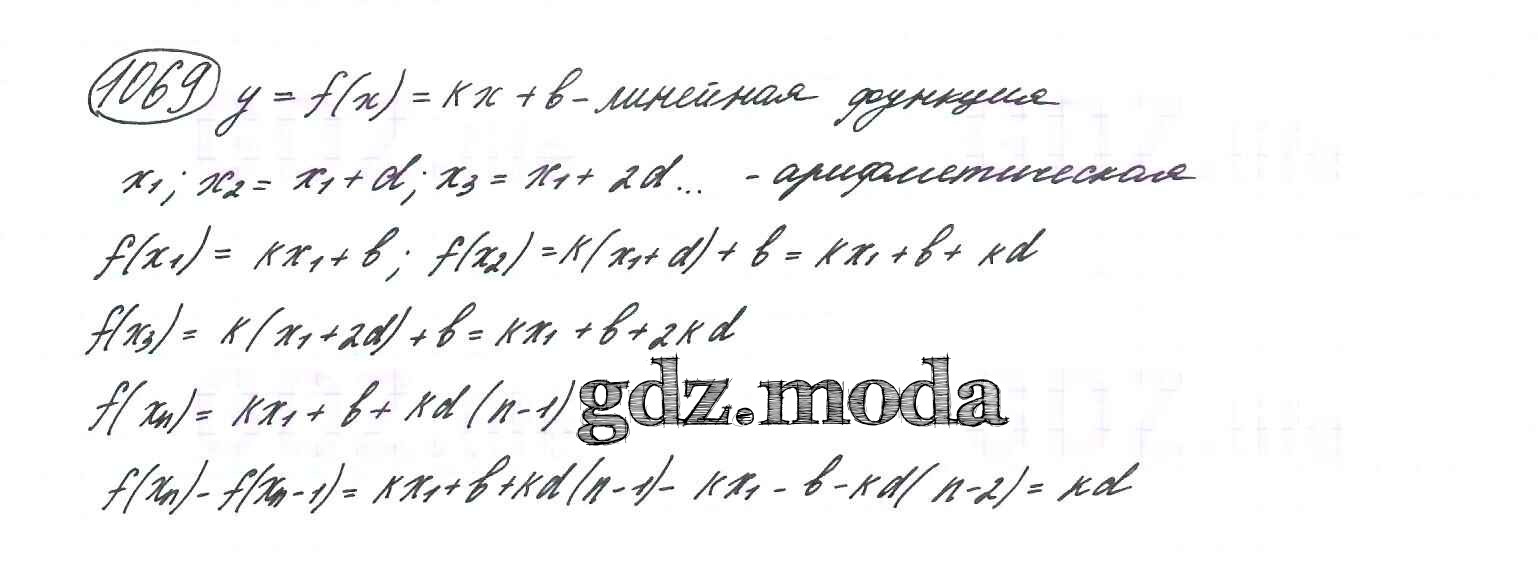 1069 y = f(x) = kx + b - линейная функция
x₁; x₂ = x₁ + d; x₃ = x₁ + 2d... - арифметическая
f(x₁) = kx₁ + b; f(x₂) = k(x₁ + d) + b = kx₁ + b + kd
f(x₃) = k(x₁ + 2d) + b = kx₁ + b + 2kd
f(xₙ) = kx₁ + b + kd(n-1) gdz.moda
f(xₙ) - f(xₙ-1) = kx₁ + b + kd(n-1) - kx₁ - b - kd(n-2) = kd